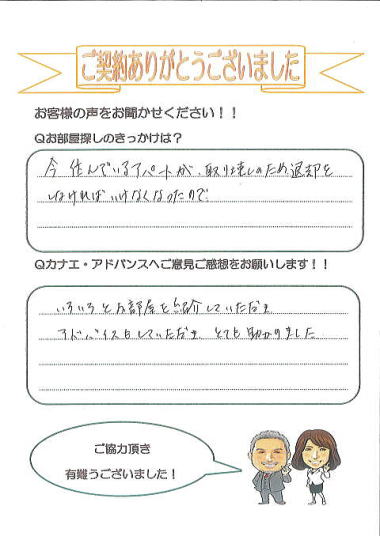 ご契約ありがとうございました
お客様の声をお聞かせください！！
Ｑお部屋探しのきっかけは？
今住んでいるアパートが、取り壊しのため退却を
しなければいけなくなったので
Ｑカナエ・アドバンスへご意見ご感想をお願いします！！
いろいろとお部屋を紹介していただき
アドバイスもしていただき、とても助かりました
ご協力頂き
有難うございました！